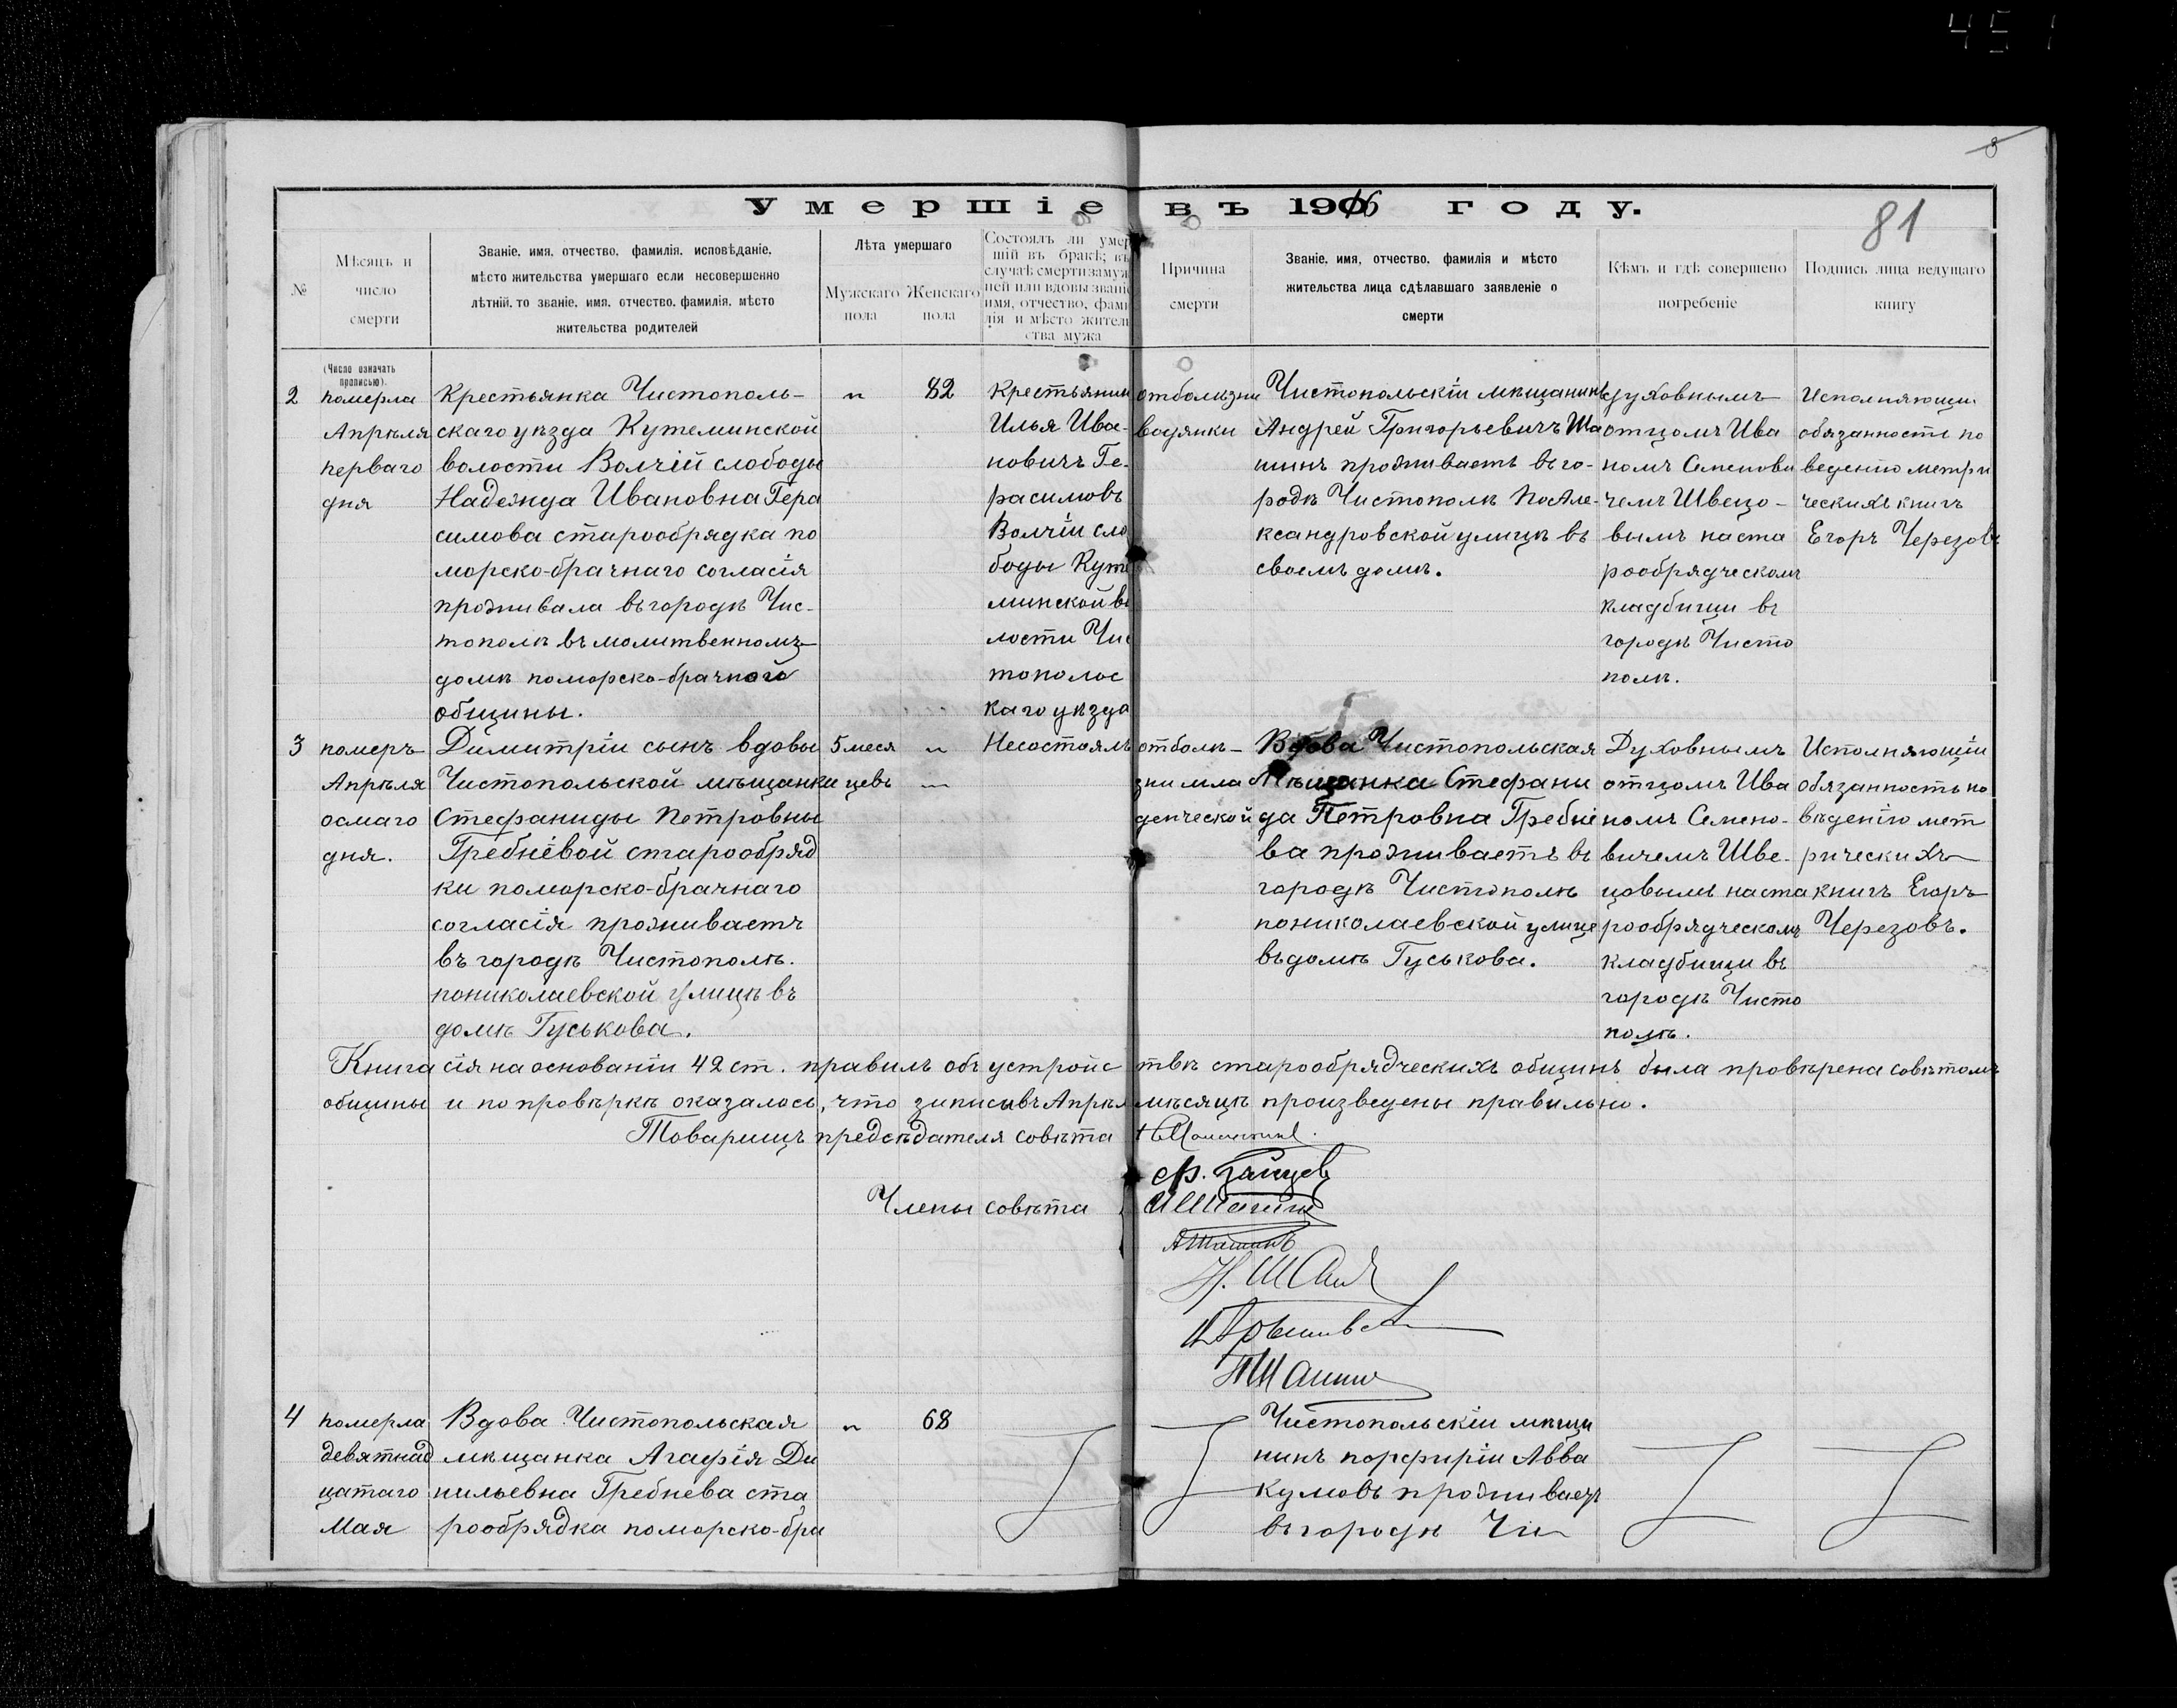 451
8
Умершіе въ 1916 году.
81
№
Мѣсяцъ и
число
смерти
Званіе, имя, отчество, фамилія, исповѣданіе,
мѣсто жительства умершаго если несовершенно
лѣтній, то званіе, имя, отчество, фамилія, мѣсто
жительства родителей
Лѣта умершаго
Мужскаго
пола
Женскаго
пола
Состоялъ ли умер
шій въ бракѣ; въ
случаѣ смерти замуж
ней или вдовы званіе
имя, отчество, фами
лія и мѣсто житель
ства мужа
Причина
смерти
Званіе, имя, отчество, фамилія и мѣсто
жительства лица сдѣлавшаго заявленіе о
смерти
Кѣмъ и гдѣ совершено
погребеніе
Подпись лица ведущаго
книгу
(Число означать
прописью).
2
померла
Апрѣля
перваго
дня
Крестьянка Чистополь-
скаго уѣзда Кутеминской
волости Волчій слободы
Надежда Ивановна Гера
симова старообрядка по
морско-брачнаго согласія
проживала въ городѣ Чис-
тополѣ въ молитвенномъ
домѣ поморско-брачного
общины.
"
82
Крестьянин
Илья Ива-
новичъ Ге-
расимовъ
Волчіи сло
боды Куте
минской во
лости Чис
тополос
каго уѣзда
отболѣзни
водянки
Чистопольскіи мѣщанинъ
Андрей Григорьевичъ Ша
шинъ проживаетъ въ го-
родѣ Чистополѣ По Але-
ксандровской улицѣ въ
своемъ домѣ.
духовнымъ
отцомъ Ива
номъ Семенови
чемъ Швецо-
вымъ на ста
рообрядческомъ
кладбищи въ
городѣ Чисто
полѣ.
Исполняющи
обязанность по
веденію метри
ческихъ книгъ
Егоръ Черезовъ
3
померъ
Апрѣля
осмаго
дня.
Димитріи сынъ вдовы
Чистопольской мѣщанки
Стефаниды Петровны
Гребнёвой старообряд
ки поморско-брачнаго
согласія проживаетъ
въ городѣ Чистополѣ.
пониколаевской улицѣ въ
домѣ Гуськова.
5 меся
цевъ
"
Несостоялъ
отболѣ-
зни мла
денческой
Вдова Чистопольская
Мѣщанка Стефани
да Петровна Гребнё
ва проживаетъ въ
городѣ Чистополѣ
пониколаевской улице
въ домѣ Гуськова.
Духовнымъ
отцомъ Ива
номъ Семено-
вичемъ Шве-
цовымъ на ста
рообрядческомъ
кладбищи въ
городѣ Чисто
полѣ.
Исполняющіи
обязанность по
вѣденію мет
рическихъ
книгъ Егоръ
Черезовъ.
Книга сія на основаніи 42 ст. правилъ объ устройствѣ старообрядческихъ общинъ была провѣрена совѣтомъ
общины и по провѣркѣ оказалось, что записи въ Апрѣл мѣсяцѣ произведены правильно.
Товарищъ предсѣдателя совѣта
Члены совѣта
Ф. Зайцев
И Шашин
АШашинъ
Н. Ша
ПШашин
4
померла
девятнад
цатаго
Мая
Вдова Чистопольская
мѣщанка Агафія Да
нильевна Гребнева ста
рообрядка поморско-бра
"
68
Чистопольскіи мѣща
нинъ порфиріи Авва
кумовъ проживаетъ
въ городѣ Чи